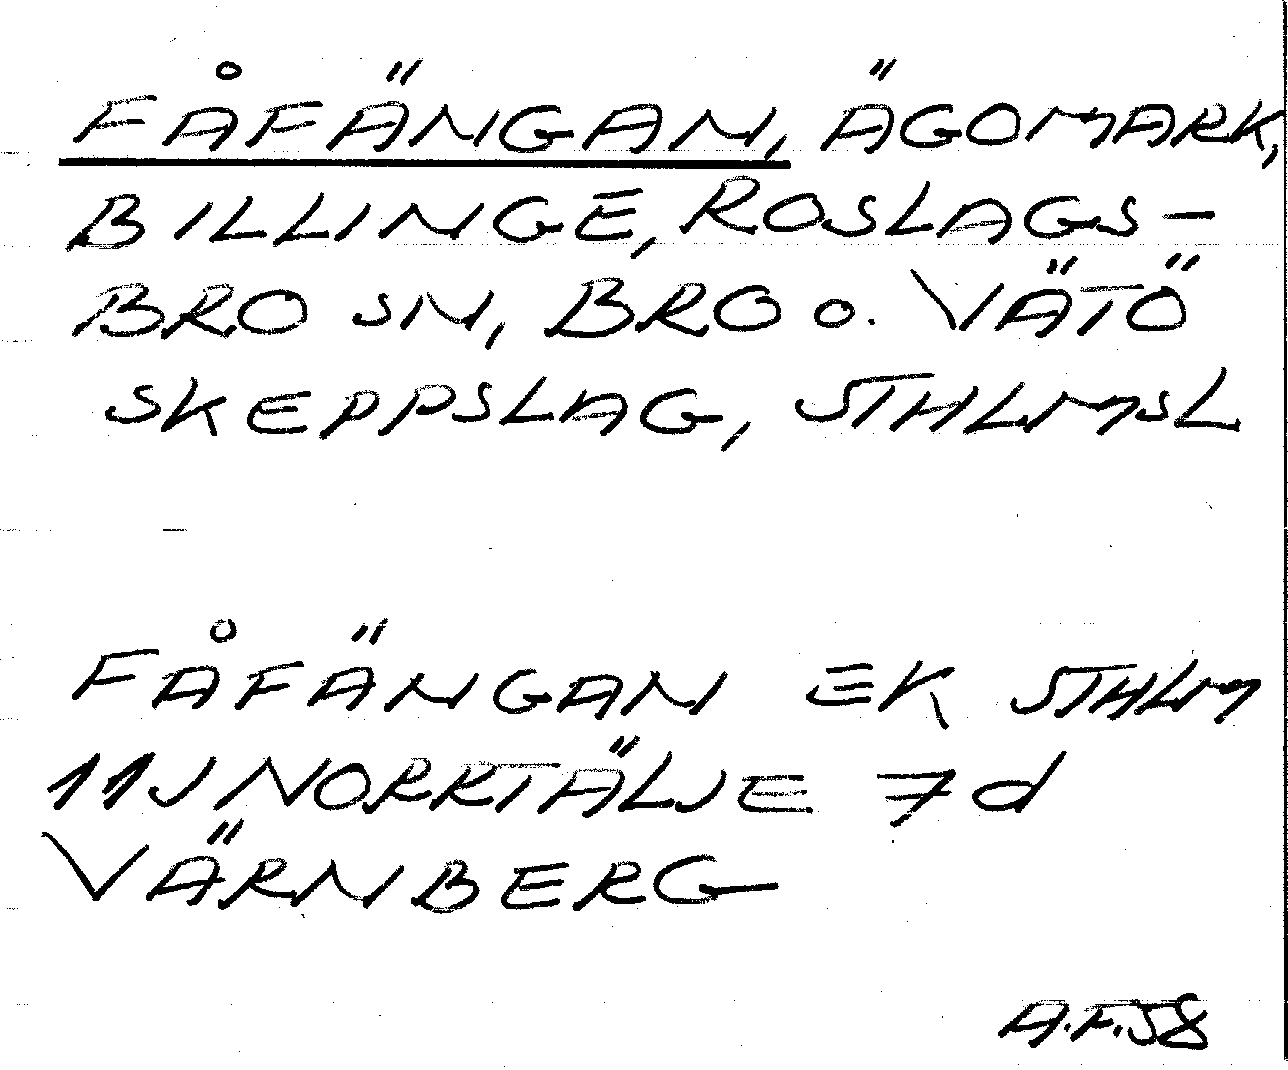 FÅFÄNGAN, ÄGOMARK,
BILLINGE, ROSLAGS-
BRO SN, BRO O. VÄTÖ
SKEPPSLAG, STHLMSL
FÅFÄNGAN EK STHLM
11J NORRTÄLJE 7d
VÄRNBERG
A.F. 58